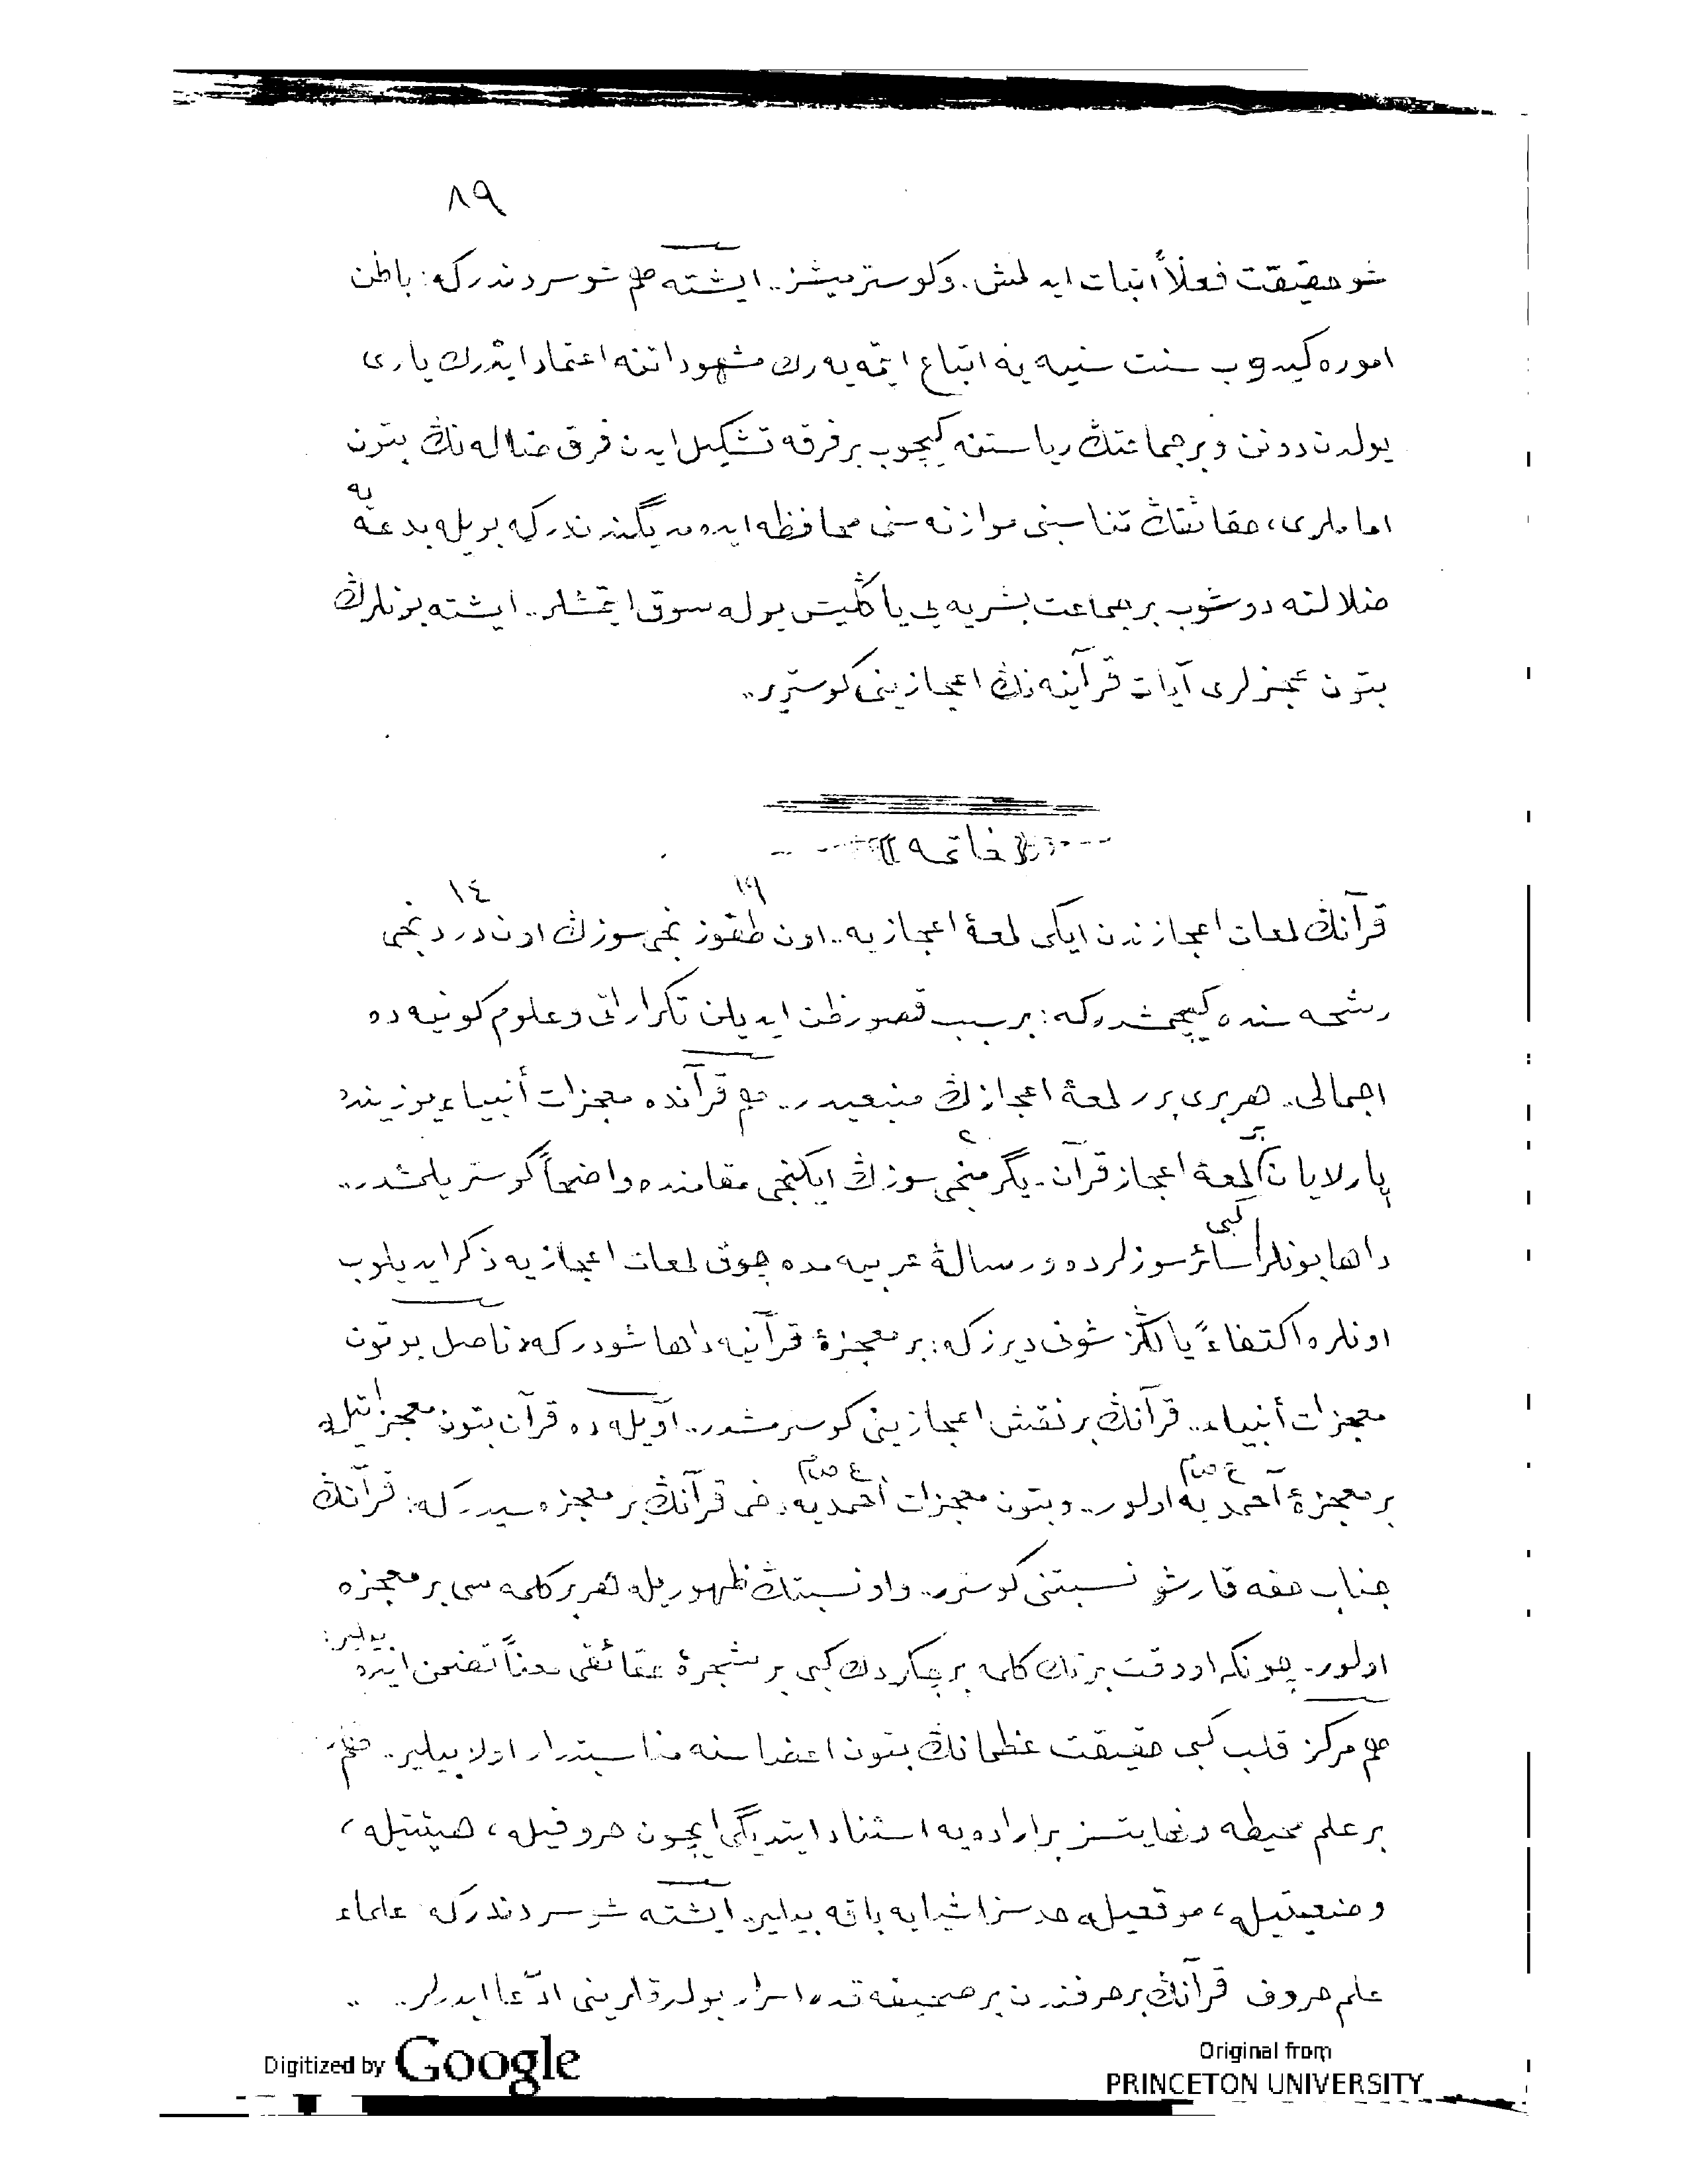 ٨٩
شو حقيقت فعلاً اثبات ايدلمش. وكوسترميشز.. ايشته هم شو سردندركه: باطن
اموره كيدوب سنت سنيه يه اتباع ايتمه يه رك مشهوداتنه اعتماد ايدرك يارى
يولدن دونن و بر جماعتڭ رياستنه كيچوب بر فرقه تشكيل ايدن فرق ضاله نڭ بتون
اماملرى، حقائقڭ تناسبنى موازنه سنى محافظه ايده مديگندندركه بويله بدعته يه
ضلالته دوشوب بر جماعت بشريه يى ياڭليش يوله سوق ايتمشلر.. ايشته بونلرڭ
بتون عجزلرى آيات قرآنيه نڭ اعجازينى كوسترير..
خاتمه
قرآنڭ لمعات اعجازندن ايكى لمعۀ اعجازيه.. اون طقوزنجى ١٩ سوزڭ اون دردنجى ١٤
رشحه سنده كيچمشدركه: بر سبب قصور ظن ايديلن تكراراتى و علوم كونيه ده
اجمالى.. هربرى برر لمعۀ اعجازڭ منبعيدر.. هم قرآنده معجزات أنبياء يوزينده
پارلايان بر لمعۀ اعجاز قرآن.. يگرمنجى سوزڭ ايكنجى ٢ مقامنده واضحاً كوستريلمشدر..
داها بونلر كبى سائر سوزلرده و رسالۀ عربيه مده چوق لمعات اعجازيه ذكر ايديلوب
اونلره اكتفاءً يالڭز شونى ديرزكه: بر معجزۀ قرآنيه داها شودركه، ناصل بوتون
معجزات أنبياء.. قرآنڭ بر نقش اعجازينى كوسترمشدر.. اويله ده قرآن بتون معجزاتيله
بر معجزۀ أحمديه ع ص م اولور.. و بتون معجزات أحمديه ع ص م دخى قرآنڭ بر معجزه سيدركه: قرآنڭ
جناب حقه قارشو نسبتنى كوسترر.. و او نسبتڭ ظهوريله هر بر كلمه سى بر معجزه
اولور.. چونكه او وقت بر تك كلمه بر چكردك كبى بر شجرۀ حقائقى معناً تضمن ايده بيلير:
هم مركز قلب كبى حقيقت عظمانڭ بتون اعضاسنه مناسبتدار اولا بيلير.. هم
بر علم محيطه و نهايتسز بر اراده يه استناد ايتديگى ايچون حروفيله، هيئتيله،
وضعيتيله، موقعيله حدسز اشيايه باقه بيلير.. ايشته شو سردندركه علماء
علم حروف قرآنڭ بر حرفندن بر صحيفه قدر اسرار بولدقلرينى ادّعا ايدرلر..
Digitized by Google
Original from
PRINCETON UNIVERSITY